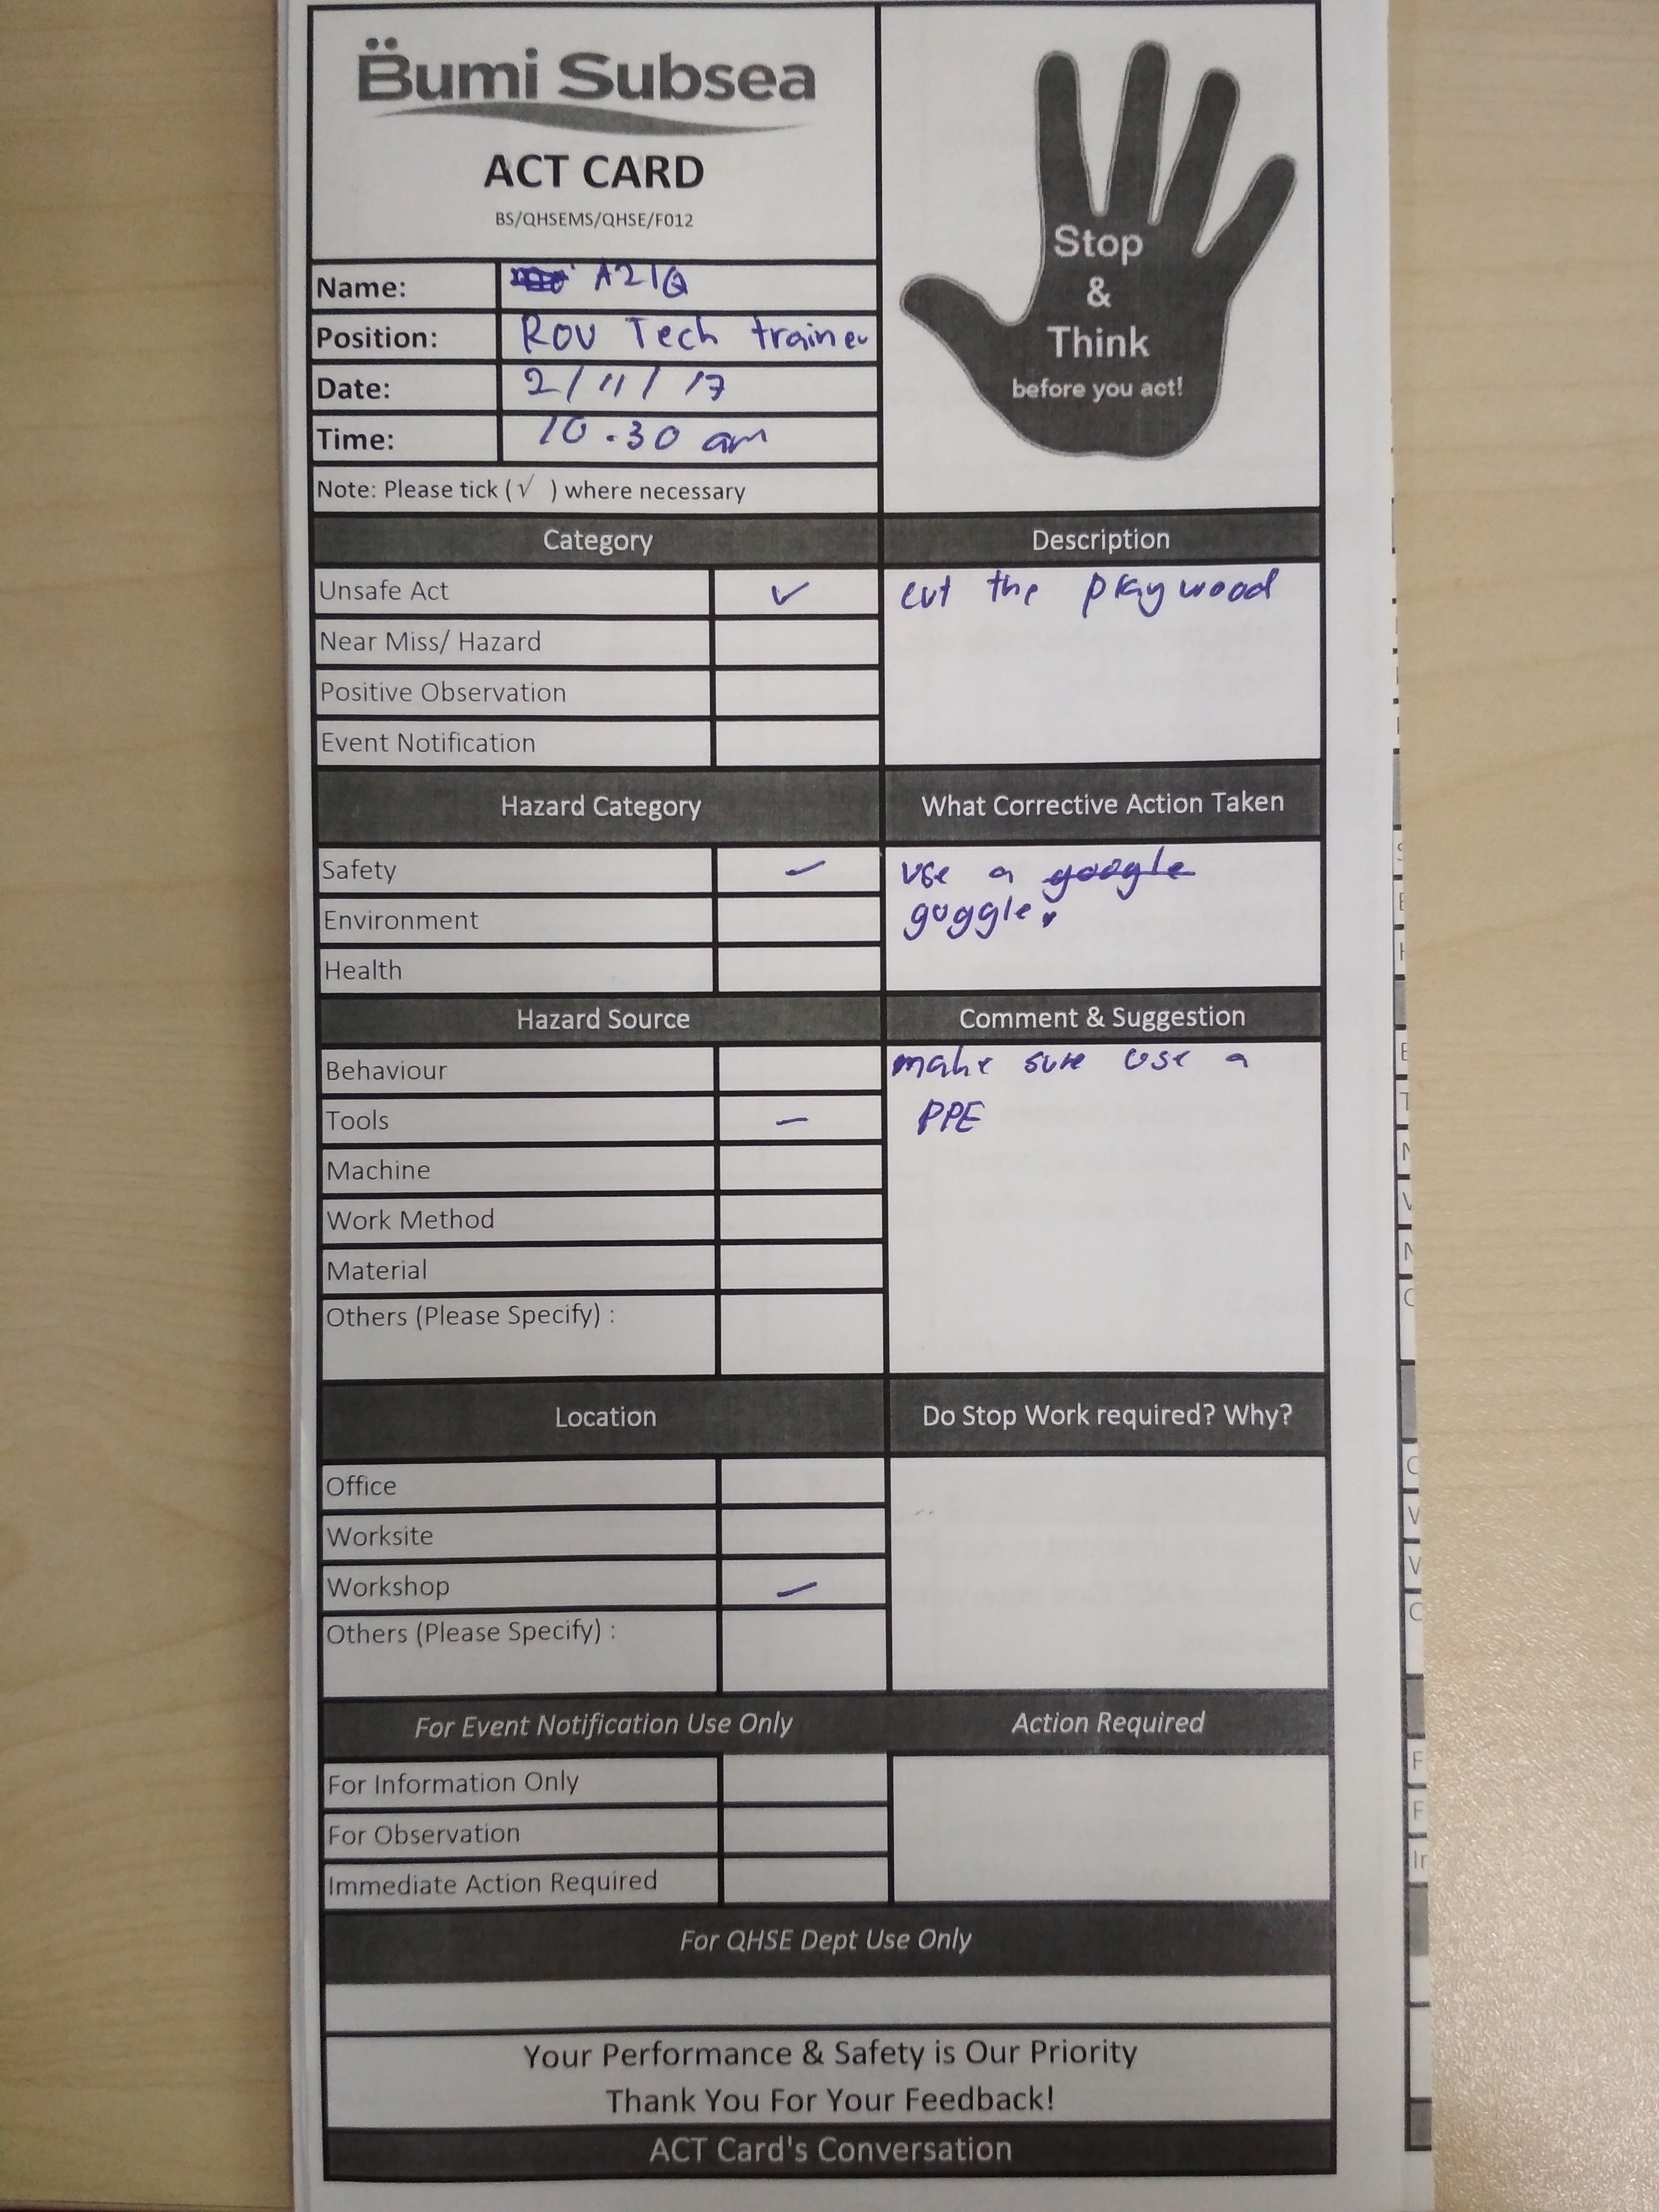 Bumi Subsea
ACT CARD
BS/QHSEMS/QHSE/F012
Stop
&
Think
before you act!
Name: AZIQ
Position: ROV Tech trainer
Date: 2/11/17
Time: 10.30 am
Note: Please tick (√ ) where necessary
Category
Description
Unsafe Act ✓
cut the playwood
Near Miss/ Hazard
Positive Observation
Event Notification
Hazard Category
What Corrective Action Taken
Safety
use a google
goggle.
Environment
Health
Hazard Source
Comment & Suggestion
Behaviour
make sure use a
PPE
Tools
Machine
Work Method
Material
Others (Please Specify) :
Location
Do Stop Work required? Why?
Office
Worksite
Workshop
Others (Please Specify) :
For Event Notification Use Only
Action Required
For Information Only
For Observation
Immediate Action Required
For QHSE Dept Use Only
Your Performance & Safety is Our Priority
Thank You For Your Feedback!
ACT Card's Conversation